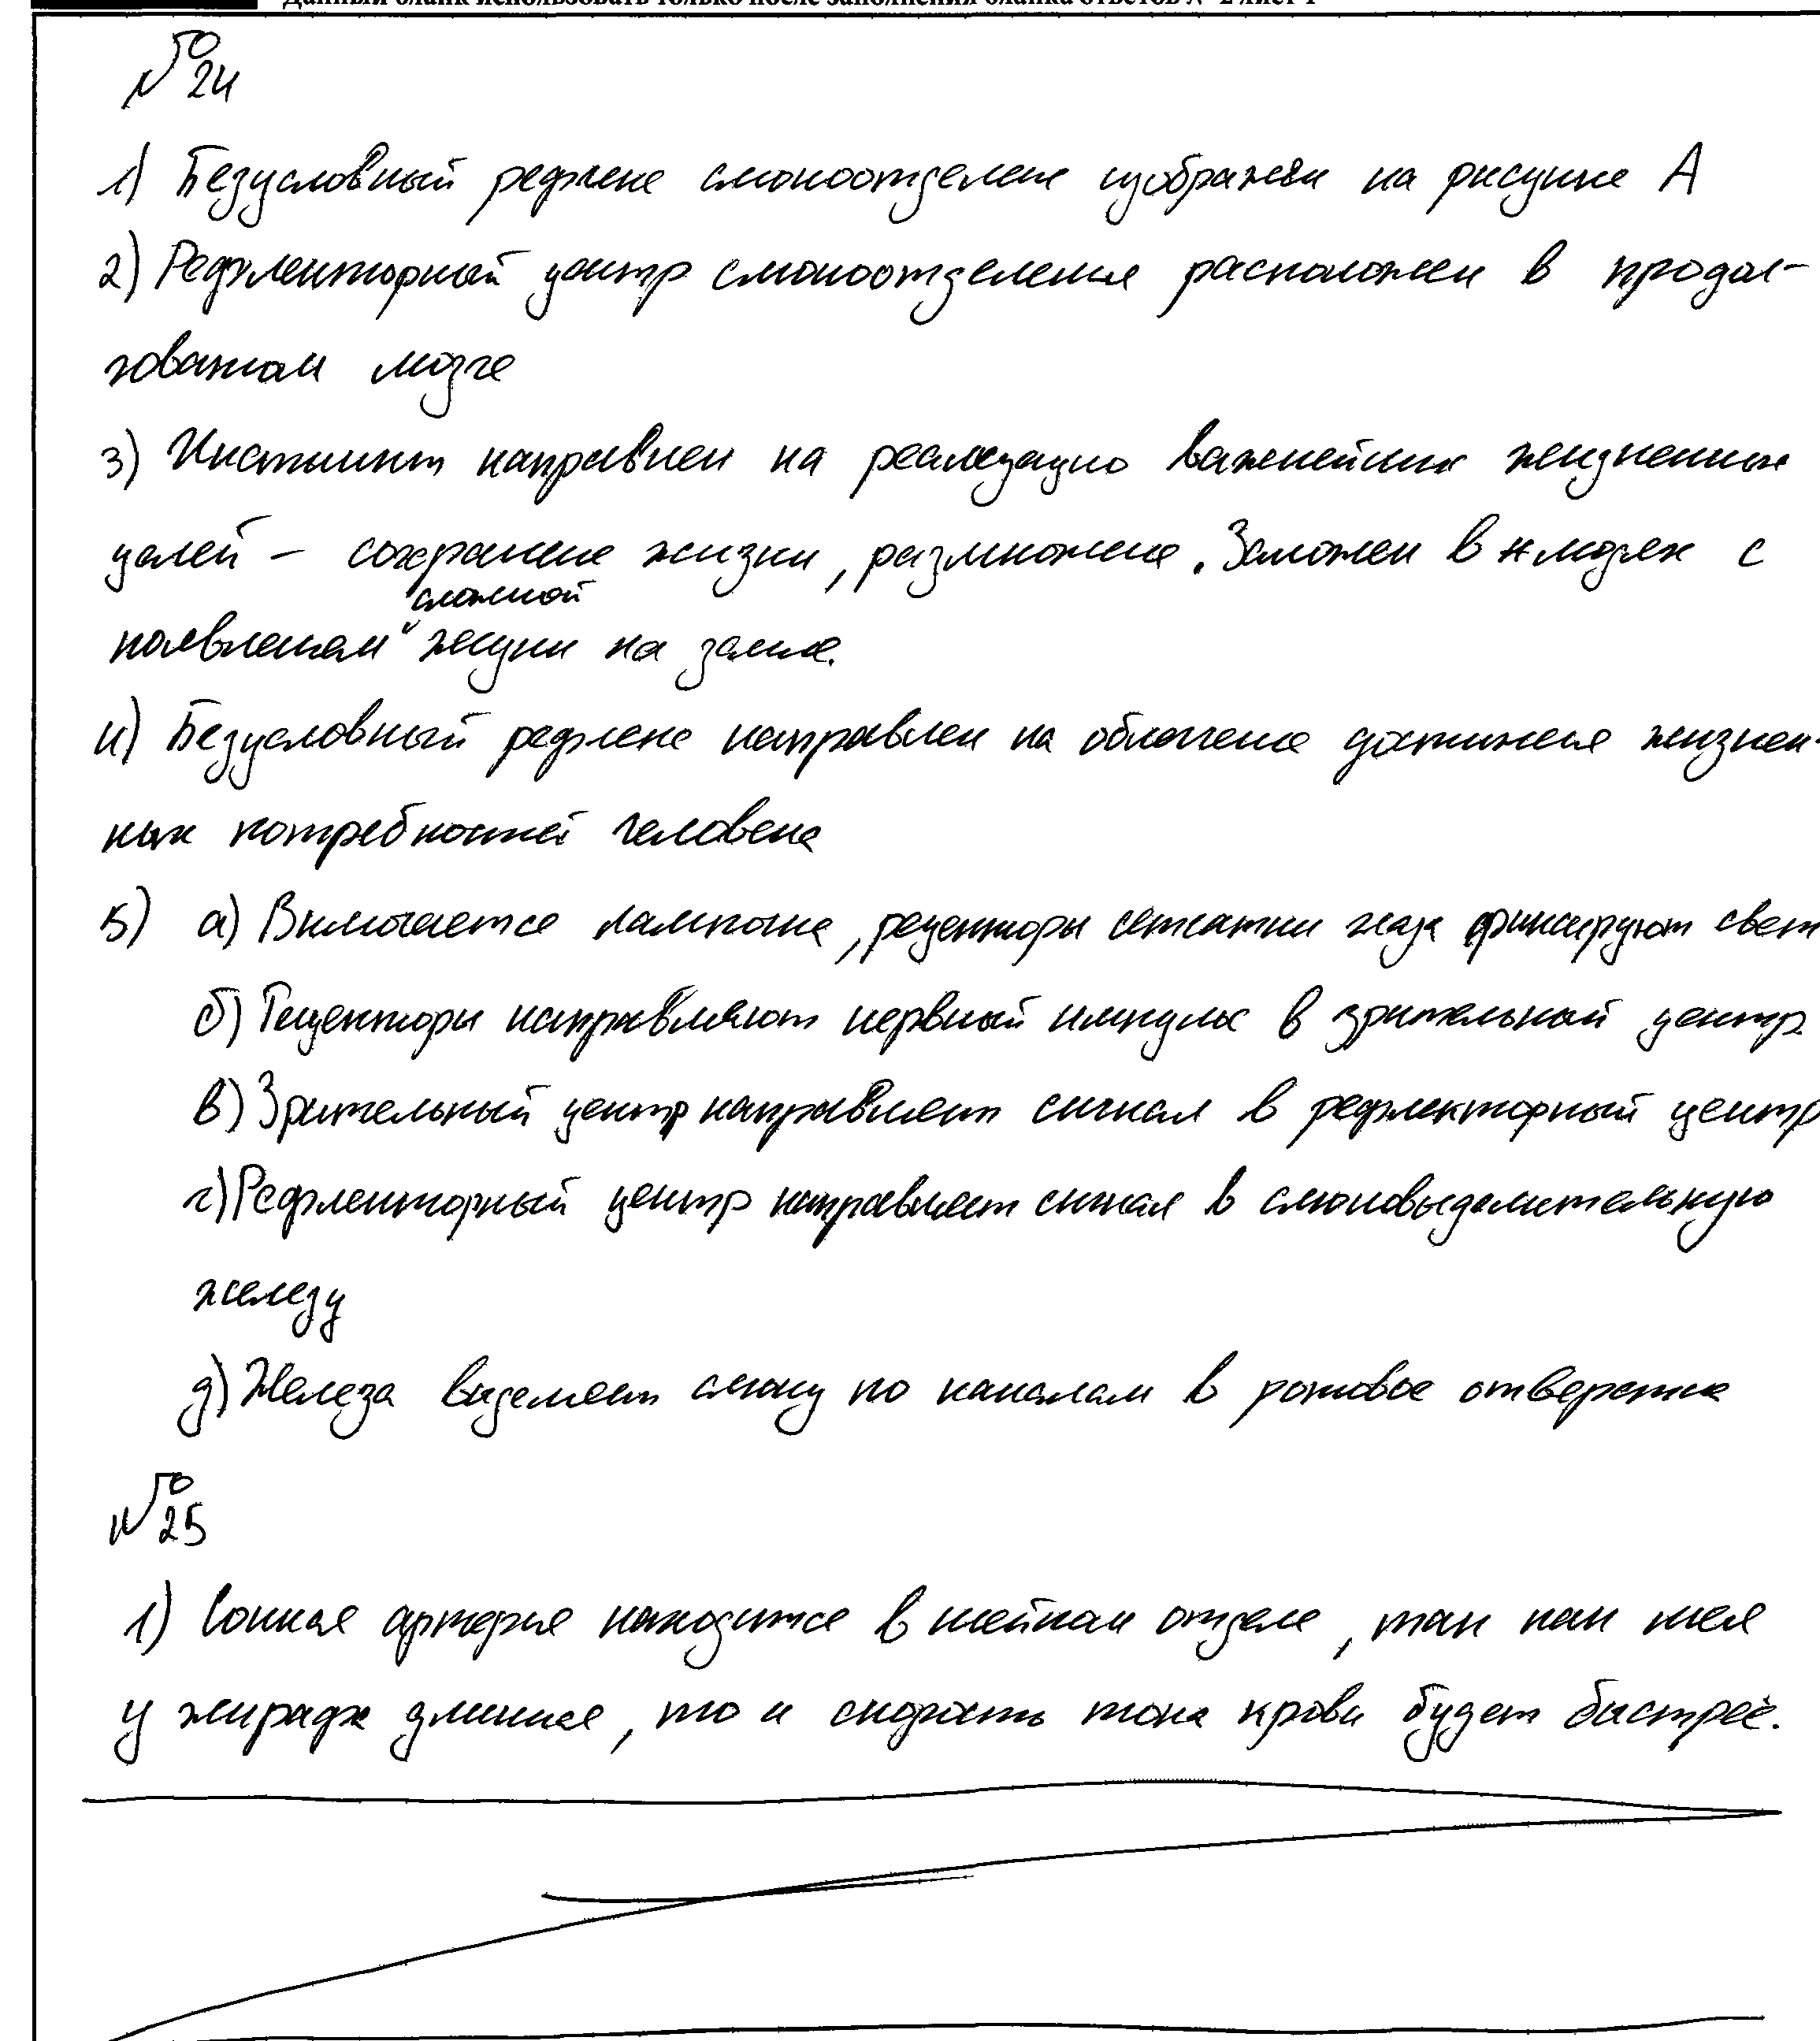 Данный бланк использовать только после заполнения бланка ответов № 2 лист 1
№ 24
1) Безусловный рефлекс слюноотделение изображён на рисунке А
2) Рефлекторный центр слюноотделения расположен в продол-
говатом мозге
3) Инстинкт направлен на реализацию важнейших жизненных
целей – сохранение жизни, размножение. Заложен в людях с
сложной
появлением жизни на земле.
4) Безусловный рефлекс направлен на облегчение достижения жизнен-
ных потребностей человека
5) а) Включается лампочка, рецепторы сетчатки глаза фиксируют свет
б) Рецепторы направляют нервный импульс в зрительный центр
в) Зрительный центр направляет сигнал в рефлекторный центр
г) Рефлекторный центр направляет сигнал в слюновыделительную
железу
д) Железа выделяет слюну по каналам в ротовое отверстие
№ 25
1) Сонная артерия находится в шейном отделе, так как шея
у жирафа длиннее, то и скорость тока крови будет быстрее.